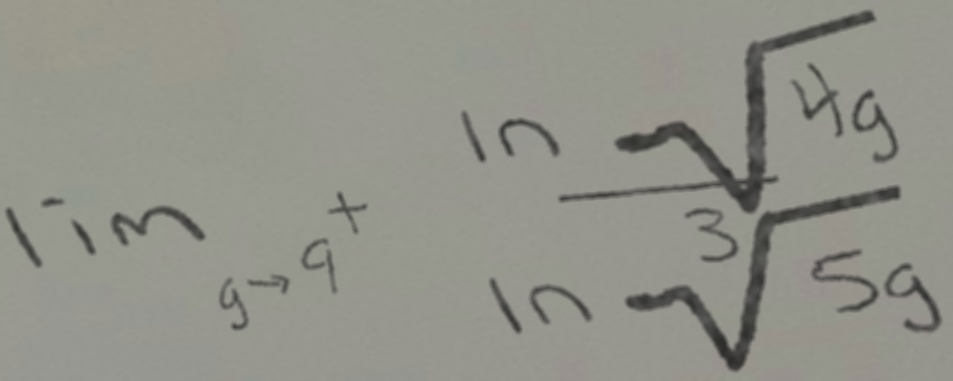 \lim_{g \to 9^+} \frac{\ln \sqrt{4g}}{\ln \sqrt[3]{5g}}